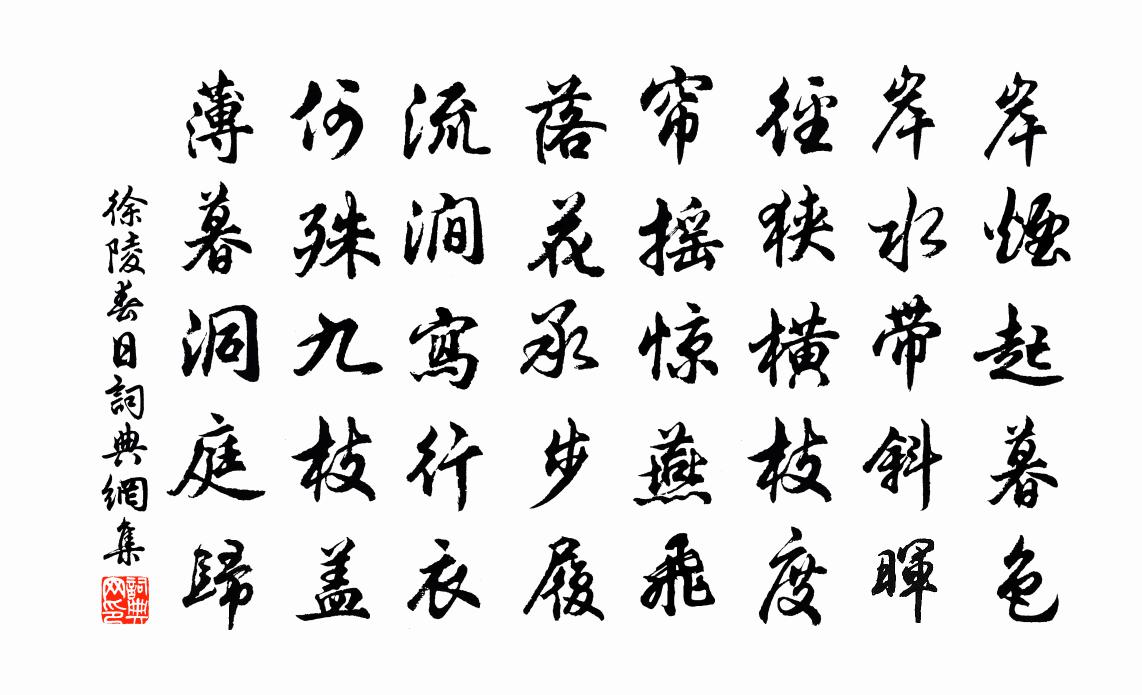 岸煙起暮色
岸水带斜暉
徑狹橫枝度
帘摇惊燕飛
落花承步履
流澗寫行衣
何殊九枝盖
薄暮洞庭歸
徐陵春日詞典網集
詞典网印